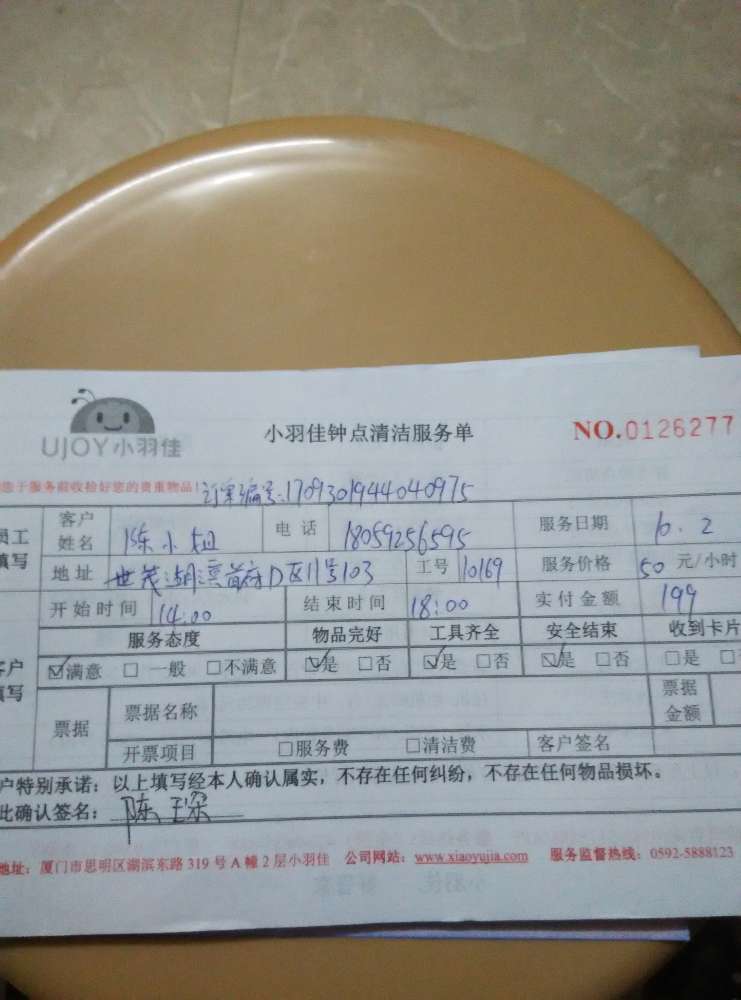 UJOY小羽佳
小羽佳钟点清洁服务单
NO.0126277
您于服务前收检好您的贵重物品! 订单编号:1709301944040975
员工填写
客户姓名 陈小姐 电话 18059256595 服务日期 10.2
地址 世茂湖滨首府D区11号103 工号 10169 服务价格 50 元/小时
开始时间 14:00 结束时间 18:00 实付金额 199
客户填写
服务态度 物品完好 工具齐全 安全结束 收到卡片
☑满意 □一般 □不满意 ☑是 □否 ☑是 □否 ☑是 □否 □是 □
票据 票据名称 票据金额
开票项目 □服务费 □清洁费 客户签名
户特别承诺:以上填写经本人确认属实,不存在任何纠纷,不存在任何物品损坏。
此确认签名:陈
地址:厦门市思明区湖滨东路319号A幢2层小羽佳 公司网站:www.xiaoyujia.com 服务监督热线:0592-5888123